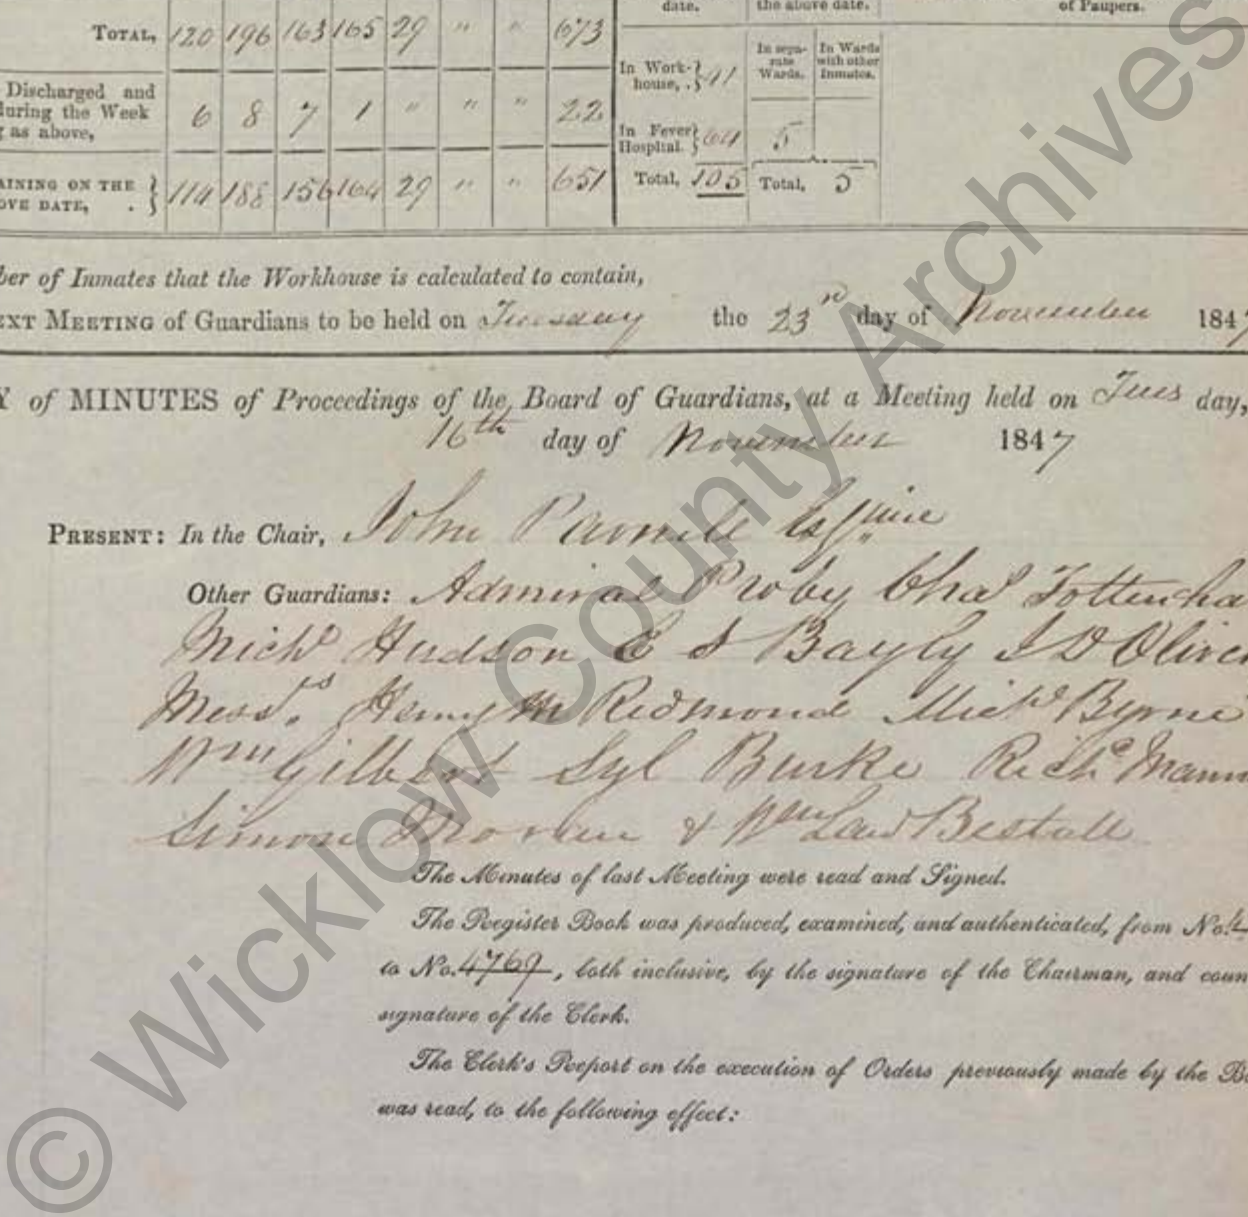 date. the above date. of Paupers.
TOTAL, 120 196 163 165 29 " " 673
In sepa- rate Wards. In Wards with other Inmates.
In Work- house, . } 41
Discharged and during the Week as above, 6 8 7 1 " " " 22
In Fever Hospital. } 64 5
REMAINING ON THE ABOVE DATE, . } 114 188 156 164 29 " " 651
Total, 105 Total, 5
ber of Inmates that the Workhouse is calculated to contain,
EXT MEETING of Guardians to be held on Tuesday the 23rd day of November 1847
Y of MINUTES of Proceedings of the Board of Guardians, at a Meeting held on Tues day,
16th day of November 1847
PRESENT: In the Chair, John Parnell Esquire
Other Guardians: Admiral Proby Chas Tottenha
Michl Hudson E S Bayly J D Oliver
Messrs. Henry M Redmond Michl Byrne
Wm Gilbert Syl Burke Richd Mann
Simon Moran & Wm Law Bestall
The Minutes of last Meeting were read and Signed.
The Register Book was produced, examined, and authenticated, from No. 4
to No. 4769, both inclusive, by the signature of the Chairman, and coun
signature of the Clerk.
The Clerk's Report on the execution of Orders previously made by the Bo
was read, to the following effect:
© Wicklow County Archives